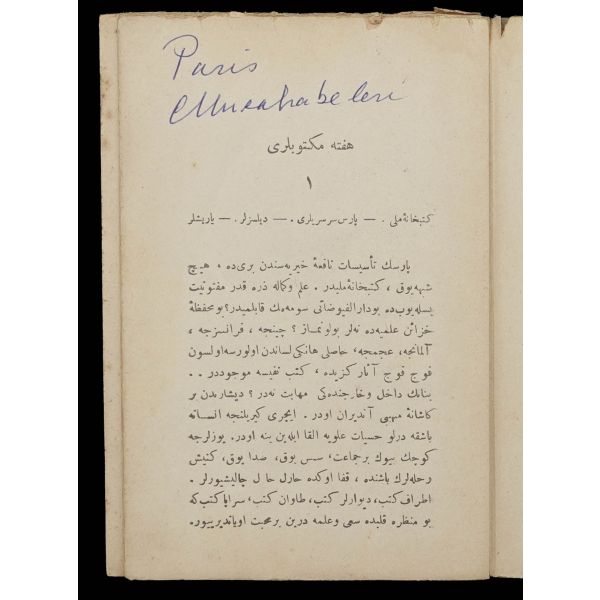 Paris
Musahabeleri
هفته مكتوبلرى
١
كتبخانهٔ ملى. — پارس سرسريلرى. — ديلسزلر. — ياريشلر
پارسك تأسيسات نافعهٔ خيريه‌سندن برى ده ، هيچ
شبهه يوق ، كتبخانهٔ مليدر. علم وكماله ذره قدر مفتونيت
بسله‌يوب ده بودار الفيوضاتى سومه‌مك قابلميدر؟ بو محفظهٔ
خزائن علميه ده نه‌لر بولونماز ؟ چينجه ، فرانسزجه ،
آلمانجه، عجمجه، حاصلى هانكى لساندن اولورسه اولسون
فوج فوج آثار كزيده ، كتب نفيسه موجوددر . .
بنانك داخل وخارجنده‌كى مهابت نه‌در ؟ ديشاريدن بر
كاشانهٔ مهيبى آنديران اودر . ايچرى كيريلنجه انسانه
باشقه درلو حسيات علويه القا ايله‌ين ينه اودر. يوزلرجه
كوچك بيوك بر جماعت، سس يوق، صدا يوق، كنيش
رحله‌لرك باشنده ، قفا اوكده حارل حارل چاليشيورلر .
اطراف كتب، ديوارلر كتب، طاوان كتب، سراپا كتب كه
بو منظره قلبده سعى وعلمه درين بر محبت اوياندیرييور.